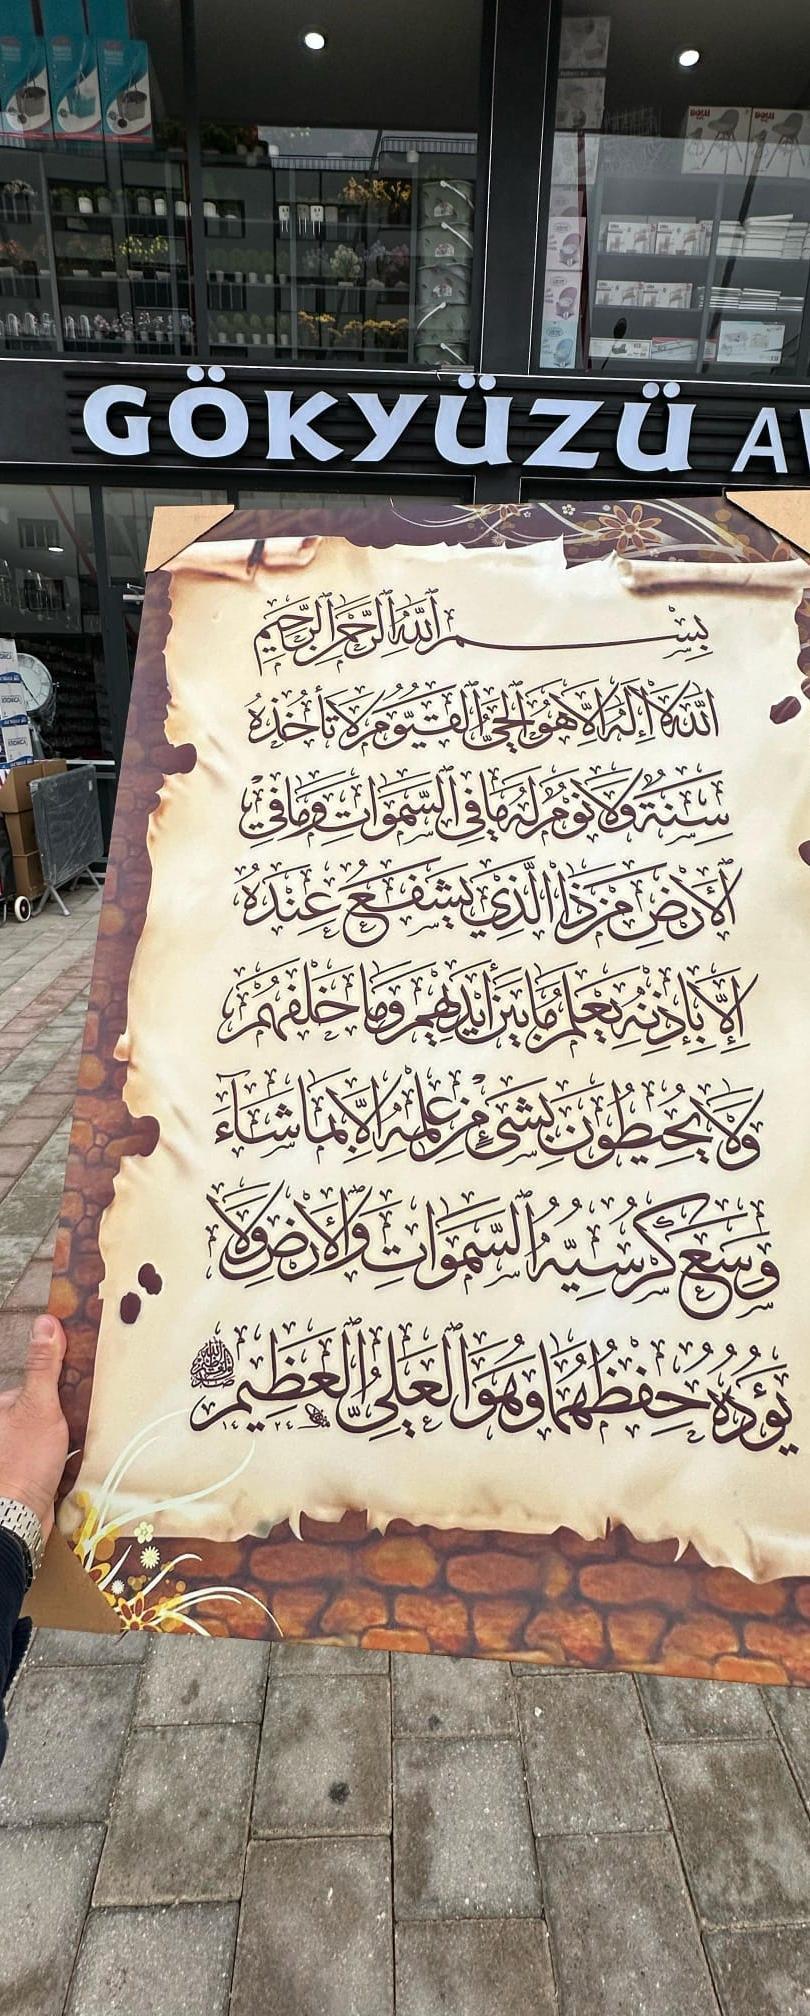 GÖKYÜZÜ AV
بِسْمِ اللّٰهِ الرَّحْمٰنِ الرَّحِيمِ
اَللّٰهُ لَا اِلٰهَ اِلَّا هُوَ الْحَيُّ الْقَيُّومُ لَا تَأْخُذُهُ
سِنَةٌ وَلَا نَوْمٌ لَهُ مَا فِي السَّمٰوَاتِ وَمَا فِي
الْاَرْضِ مَنْ ذَا الَّذِي يَشْفَعُ عِنْدَهُ
اِلَّا بِاِذْنِهِ يَعْلَمُ مَا بَيْنَ أَيْدِيهِمْ وَمَا خَلْفَهُمْ
وَلَا يُحِيطُونَ بِشَيْءٍ مِنْ عِلْمِهِ اِلَّا بِمَا شَاءَ
وَسِعَ كُرْسِيُّهُ السَّمٰوَاتِ وَالْأَرْضَ وَلَا
يَؤُدُهُ حِفْظُهُمَا وَهُوَ الْعَلِيُّ الْعَظِيمُ